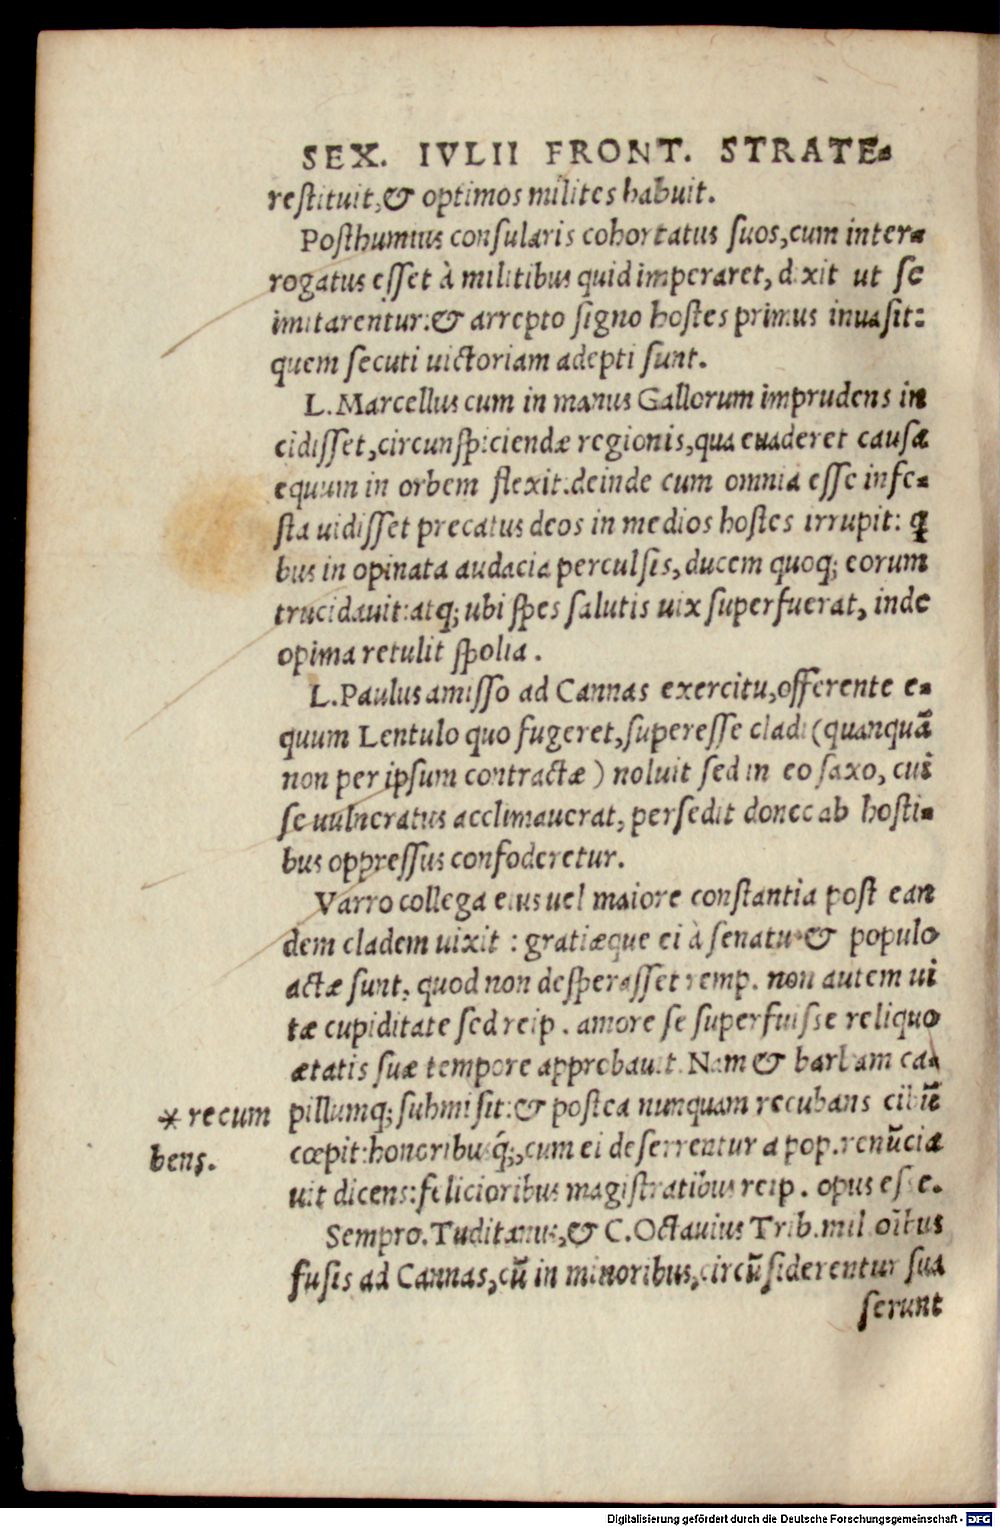 SEX. IVLII FRONT. STRATE-
restituit, & optimos milites habuit.
Posthumius consularis cohortatus suos, cum inter-
rogatus esset à militibus quid imperaret, dixit ut se
imitarentur: & arrepto signo hostes primus inuasit:
quem secuti uictoriam adepti sunt.
L. Marcellus cum in manus Gallorum imprudens in
cidisset, circunspiciendæ regionis, qua euaderet causa
equum in orbem flexit. deinde cum omnia esse infe-
sta uidisset precatus deos in medios hostes irrupit: q
bus in opinata audacia perculsis, ducem quoq; eorum
trucidauit: atq; ubi spes salutis uix superfuerat, inde
opima retulit spolia.
L. Paulus amisso ad Cannas exercitu, offerente e-
quum Lentulo quo fugeret, superesse cladi (quanquã
non per ipsum contractæ) noluit sed in eo saxo, cui
se uulneratus acclimauerat, persedit donec ab hosti-
bus oppressus confoderetur.
Varro collega eius uel maiore constantia post ean
dem cladem uixit: gratiæque ei à senatu & populo
actæ sunt, quod non desperasset remp. non autem ui
tæ cupiditate sed reip. amore se superfuisse reliquo
ætatis suæ tempore approbauit. Nam & barbam ca-
pillumq; submisit: & postea nunquam recubans cibũ
cœpit: honoribusq́;, cum ei deferrentur a pop. renũcia
uit dicens: felicioribus magistratibus reip. opus esse.
Sempro. Tuditanus, & C. Octauius Trib. mil. oĩbus
fusis ad Cannas, cũ in minoribus, circũsiderentur sua
serunt
* recum
bens.
Digitalisierung gefördert durch die Deutsche Forschungsgemeinschaft - DFG